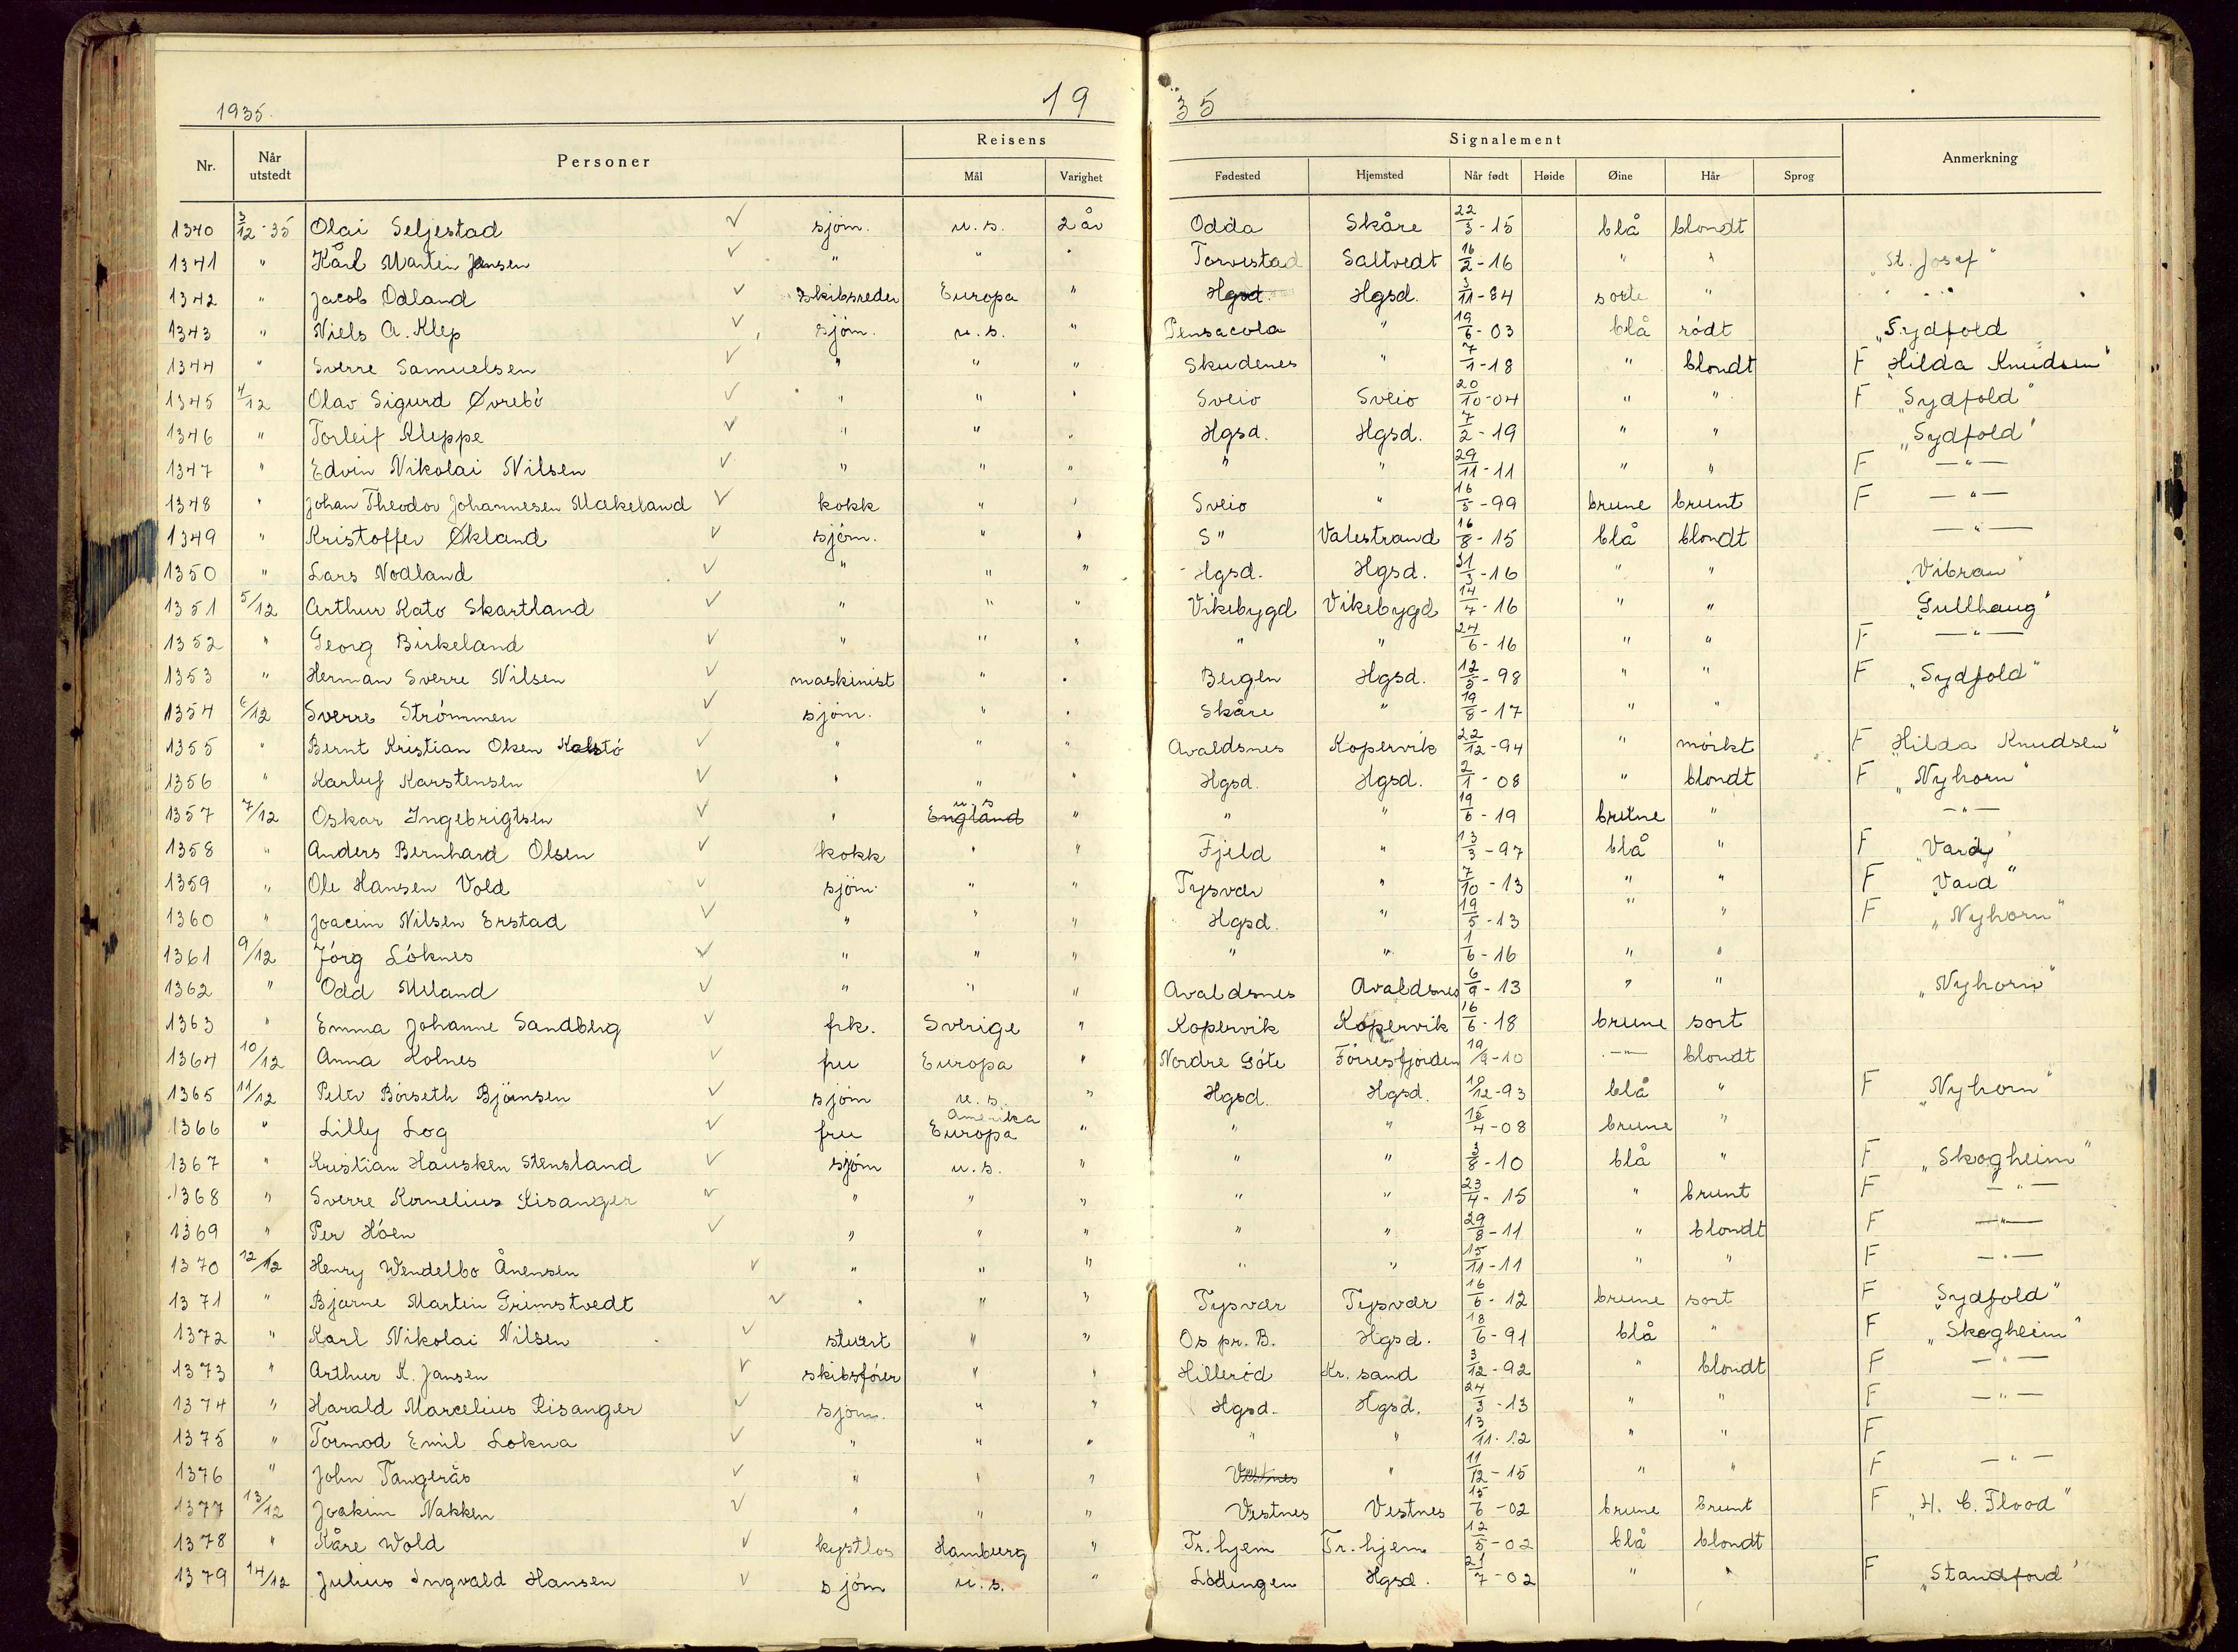 1935. 19 35
Reisens Signalement
Nr. Når utstedt Personer Mål Varighet Fødested Hjemsted Når født Høide Øine Hår Sprog Anmerkning
1340 3/12-35 Olai Seljestad ✓ sjøm. u.s. 2 år Odda Skåre 22/3-15 blå blondt
1341 " Kårl Martin Jensen ✓ " " " Torvestad Saltvedt 16/2-16 " " "St. Josef"
1342 " Jacob Odland ✓ skibsreder Europa " Hgsd. Hgsd. 3/11-84 sorte "
1343 " Niels A. Klep ✓ sjøm. u.s. " Pensacola " 19/6-03 blå rødt "Sydfold
1344 " Sverre Samuelsen ✓ " " " Skudenes " 7/1-18 " blondt F "Hilda Knudsen"
1345 4/12 Olav Sigurd Øvrebö ✓ " " " Sveio Sveio 20/10-04 " " F "Sydfold"
1346 " Torleif Kleppe ✓ " " " Hgsd. Hgsd. 7/2-19 " " "Sydfold"
1347 " Edvin Nikolai Nilsen ✓ " " " " " 29/11-11 " " F —"—
1348 " Johan Theodor Johannesen Mækeland ✓ kokk " " Sveio " 16/5-99 brune brunt F —"—
1349 " Kristoffer Økland ✓ sjøm. " " S" Valestrand 16/8-15 blå blondt —"—
1350 " Lars Nodland ✓ " " " Hgsd. Hgsd. 31/3-16 " " "Vibran"
1351 5/12 Arthur Kato Skartland ✓ " " " Vikebygd Vikebygd 14/7-16 " " "Gullhaug"
1352 " Georg Birkeland ✓ " " " " " 24/6-16 " " F —"—
1353 " Herman Sverre Nilsen ✓ maskinist " " Bergen Hgsd. 12/5-98 " " F "Sydfold"
1354 6/12 Sverre Strömmen ✓ sjøm. " " Skåre " 19/8-17 " "
1355 " Bernt Kristian Olsen Kalstö ✓ " " " Avaldsnes Kopervik 22/12-94 " mörkt F "Hilda Knudsen"
1356 " Karluf Karstensen ✓ " " " Hgsd. Hgsd. 2/1-08 " blondt F "Nyhorn"
1357 7/12 Oskar Ingebrigtsen ✓ " u.s England " " " 19/6-19 brune " —"—
1358 " Anders Bernhard Olsen ✓ kokk " " Fjeld " 13/3-97 blå " F "Vard"
1359 " Ole Hansen Vold ✓ sjøm. " " Tysvær " 7/10-13 " " F "Vard"
1360 " Joacim Nilsen Erstad ✓ " " " Hgsd. " 19/5-13 " " F "Nyhorn"
1361 9/12 Jörg Löknes ✓ " " " " " 1/6-16 " "
1362 " Odd Meland ✓ " " " Avaldsnes Avaldsnes 6/9-13 " " "Nyhorn"
1363 " Emma Johanne Sandberg ✓ frk. Sverige " Kopervik Kopervik 16/6-18 brune sort
1364 10/12 Anna Holnes ✓ fru Europa " Nordre Göte Förresfjorden 19/9-10 —"— blondt
1365 11/12 Peter Börseth Björnsen ✓ sjøm u.s. " Hgsd. Hgsd. 10/12-93 blå " F "Nyhorn"
1366 " Lilly Log ✓ fru Amerika Europa " " " 15/4-08 brune "
1367 " Kristian Hausken Stensland ✓ sjøm u.s. " " " 3/8-10 blå " F "Skogheim"
1368 " Sverre Kornelius Risanger ✓ " " " " " 23/4-15 " brunt F —"—
1369 " Per Höen ✓ " " " " " 29/8-11 " blondt F —"—
1370 12/12 Henry Wendelbo Ånensen ✓ " " " " " 15/11-11 " " F —"—
1371 " Bjarne Martin Grimstvedt ✓ " " " Tysvær Tysvær 16/6-12 brune sort F "Sydfold"
1372 " Karl Nikolai Nilsen ✓ stuert " " Os pr. B. Hgsd. 18/6-91 blå " F "Skogheim"
1373 " Arthur K. Jansen ✓ skibsfører " " Hilleröd Kr. sand 3/12-92 " blondt F —"—
1374 " Harald Marcelius Risanger ✓ sjøm. " " Hgsd. Hgsd. 24/3-13 " " F —"—
1375 " Tormod Emil Lokna ✓ " " " " " 13/11-12 " " F
1376 " John Tangerås ✓ " " " Vestnes " 11/12-15 " " F —"—
1377 13/12 Joakim Nakken ✓ " " " Vestnes Vestnes 15/6-02 brune brunt F "H. C. Flood"
1378 " Kåre Wold ✓ kystlos Hamburg " Tr.hjem Tr.hjem 12/5-02 blå blondt
1379 14/12 Julius Ingvald Hansen ✓ sjøm u.s. " Lödingen Hgsd. 21/7-02 " " F "Standford"